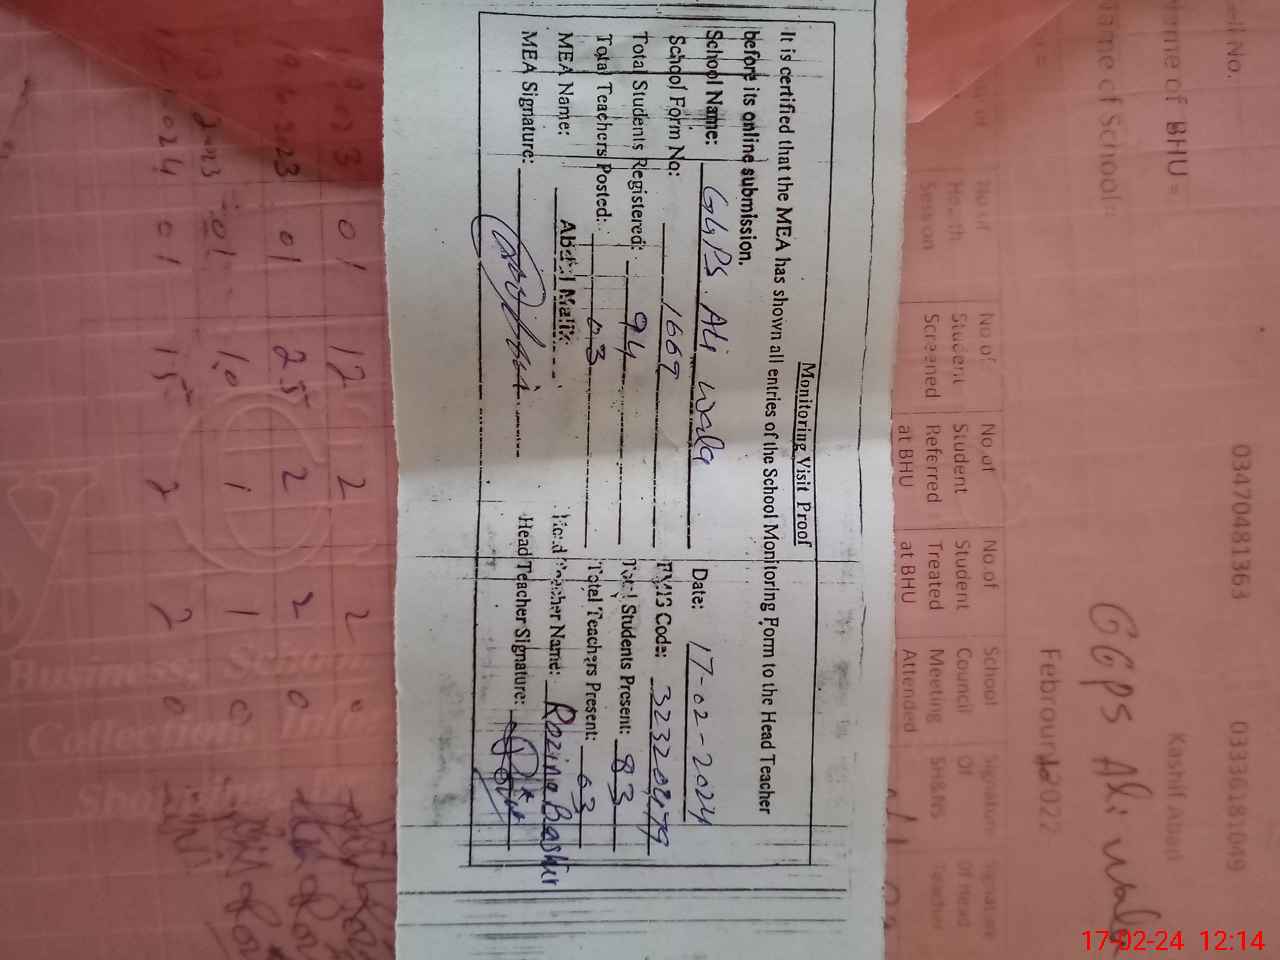 Monitoring Visit Proof
It is certified that the MEA has shown all entries of the School Monitoring Form to the Head Teacher
before its online submission.
School Name: GGPS Ali Wala Date: 17-02-2024
School Form No: 1669 EMIS Code: 32320479
Total Students Registered: 94 Total Students Present: 83
Total Teachers Posted: 03 Total Teachers Present: 03
MEA Name: Abdul Malik Head Teacher Name: Rozina Bashir
MEA Signature: Head Teacher Signature:
l No.
03470481363 03336181049
Name of BHU = Kashif Abari
Name of School= GGPS Ali wala
Februory 2022
No of Health Session
No of Student Screened
No of Student Referred at BHU
No of Student Treated at BHU
School Council Meeting Attended
Signature Of SH&NS
Signature Of Head Teacher
2023 01 12 2 2 0
2023 01 25 2 2 0
2023 01 10 1 1 0
2024 01 15 2 2 0
Business School
17-02-24 12:14